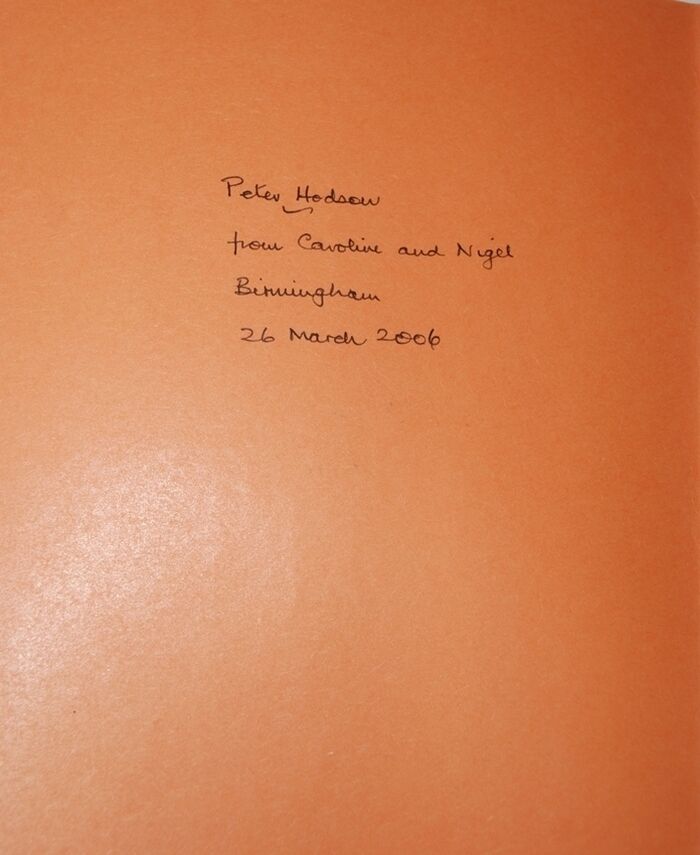 Peter Hodson
from Caroline and Nigel
Birmingham
26 March 2006